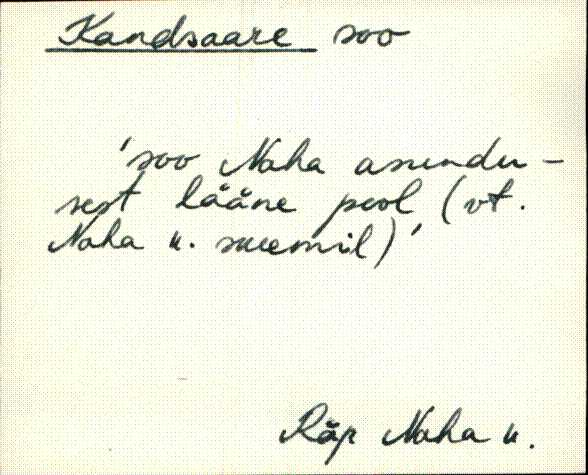 Kandsaare soo
'soo Naha asundu-
sest lääne pool (vt.
Naha u. suuemil)'
Räp Naha u.